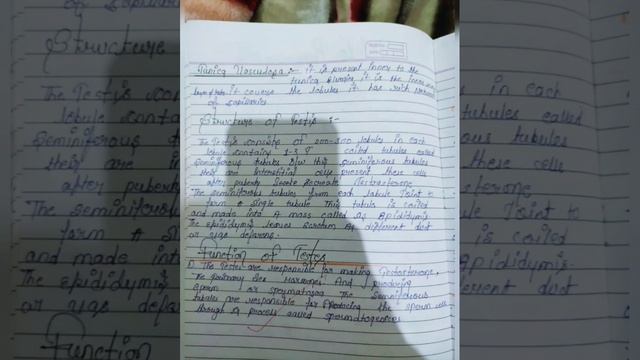 Tunica Vasculosa :- it is present inner to the
tunica it is the
layer of testis it covers the lobules it has rich
of capillaries
Structure of Testis :-
The Testis consists of 200-300 lobules in each
lobule contains 1-3 coiled tubules called
Seminiferous tubules B/w this seminiferous tubules
their are interstitial cells present these cells
after puberty Secrete Testosterone
The seminiferous tubules from each lobule Joint to
form a single tubule This tubule is coiled
and made into A mass called as Epididymis
The epididymis leaves scrotum as different duct
or vas deferens.
Function of Testis
1) The testes are responsible for making testosterone,
The primary sex Harmones, And producing
sperm or spermatozoa The Seminiferous
tubules are responsible for producing the sperm cells
through a process called spermatogenesis